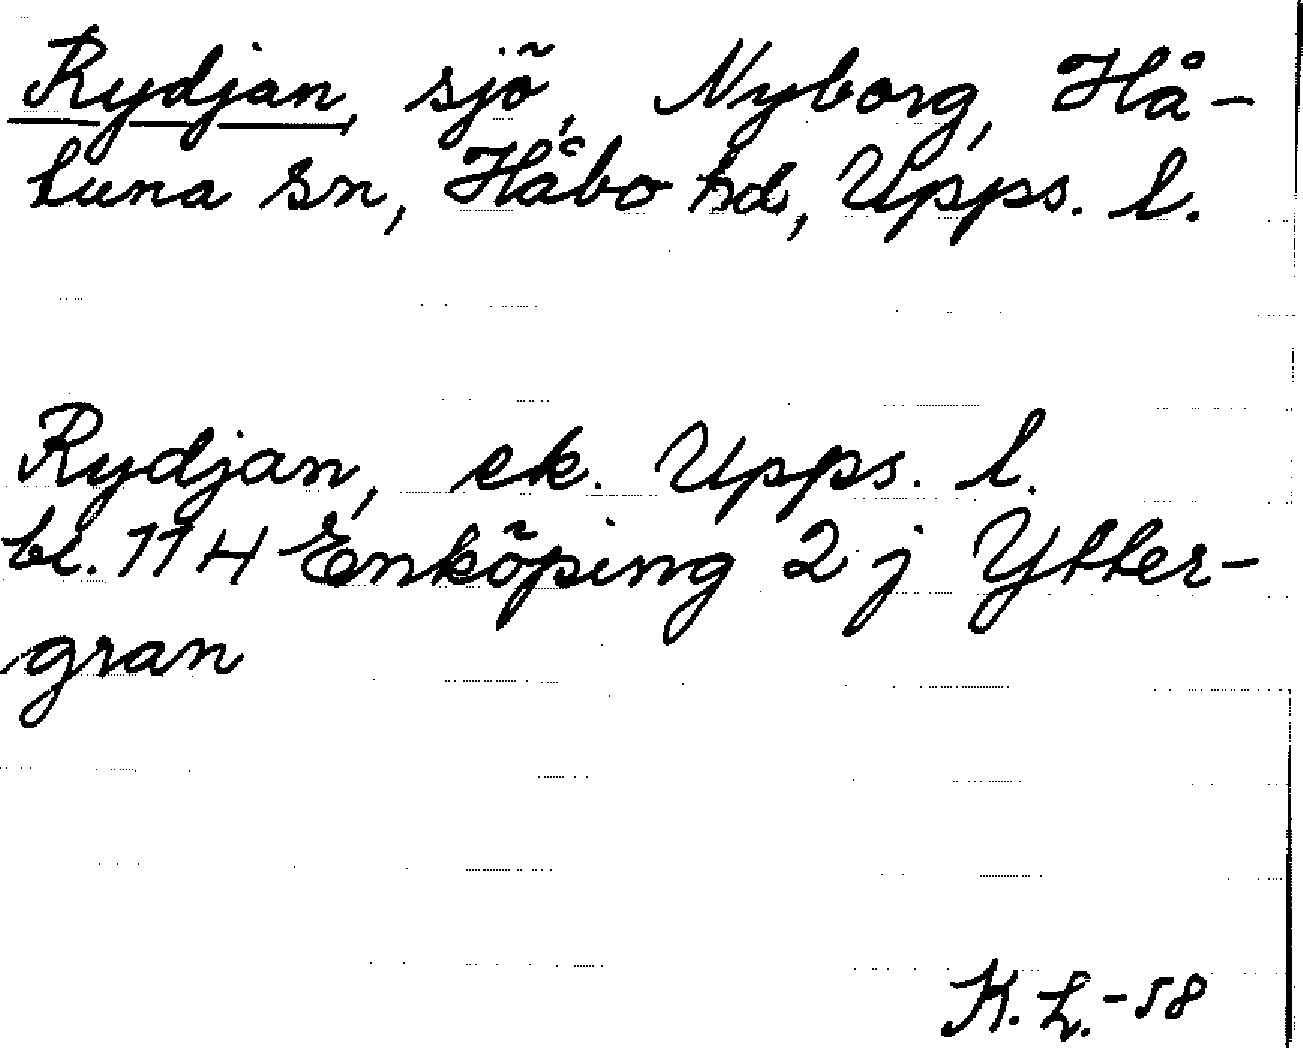 Rydjan, sjö, Nyborg, Hå-
tuna sn, Håbo hd, Upps. l.
Rydjan, ek. Upps. l.
bl. 114 Enköping 2 j Ytter-
gran
K. L. -58